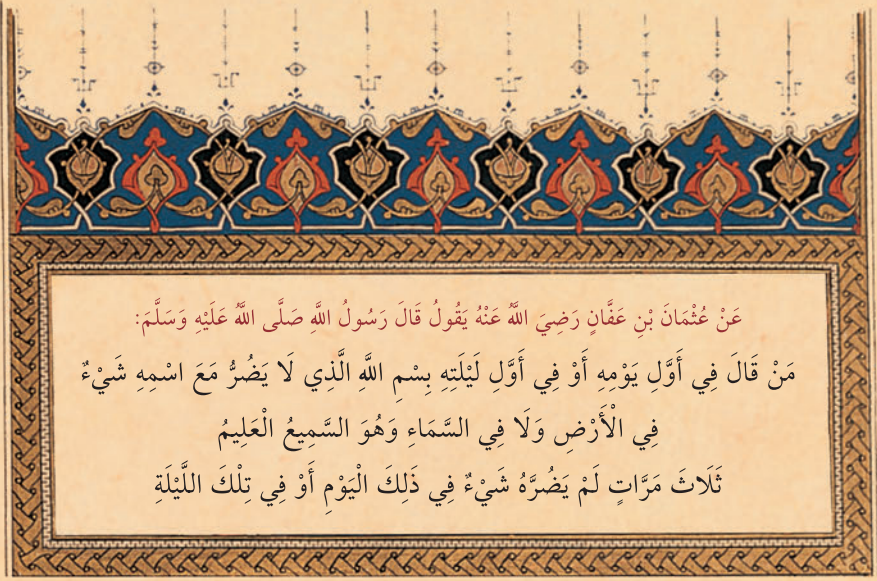 عَنْ عُثْمَانَ بْنِ عَفَّانٍ رَضِيَ اللَّهُ عَنْهُ يَقُولُ قَالَ رَسُولُ اللَّهِ صَلَّى اللَّهُ عَلَيْهِ وَسَلَّمَ:
مَنْ قَالَ فِي أَوَّلِ يَوْمِهِ أَوْ فِي أَوَّلِ لَيْلَتِهِ بِسْمِ اللَّهِ الَّذِي لَا يَضُرُّ مَعَ اسْمِهِ شَيْءٌ
فِي الْأَرْضِ وَلَا فِي السَّمَاءِ وَهُوَ السَّمِيعُ الْعَلِيمُ
ثَلَاثَ مَرَّاتٍ لَمْ يَضُرَّهُ شَيْءٌ فِي ذَلِكَ الْيَوْمِ أَوْ فِي تِلْكَ اللَّيْلَةِ